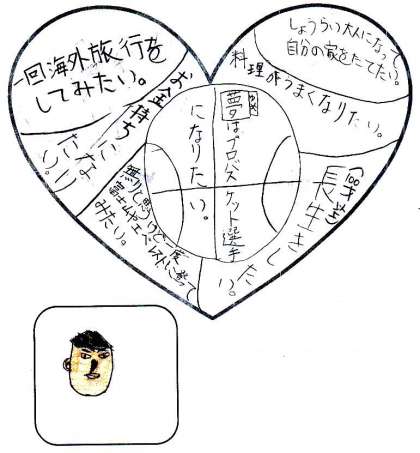 一回海外旅行を
してみたい。
しょうらい大人になって
自分の家をたてたい。
料理がうまくなりたい。
お金持ちに
なり
たい。
夢はプロバスケット選手
になりたい。
長生きし
たい。
富士山やエベレストに登って
みたい。